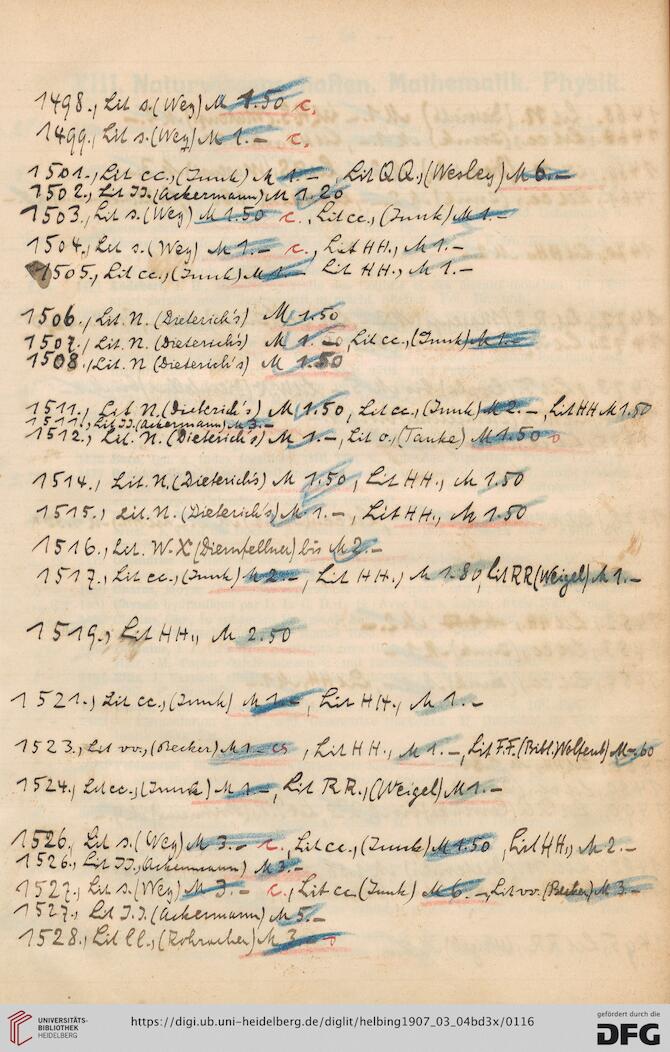 1498., Lit s. (Weg) M 1.50 c.
1499., Lit s. (Weg) M 1.- c.
1501., Lit cc., (Junk) M 1.-, Lit QQ., (Wesley) M 6.-
1502., Lit JJ. (Ackermann) M 1.20
1503., Lit s. (Weg) M 1.50 c., Lit cc., (Junk) M 1.-
1504., Lit s. (Weg) M 1.- c., Lit HH., M 1.-
1505., Lit cc., (Junk) M 1.- Lit HH., M 1.-
1506., Lit. N. (Dieterich's) M 1.50
1507., Lit. N. (Dieterich's) M 1.-, Lit cc., (Junk) M 1.-
1508., Lit. N (Dieterich's) M 1.50
1511., Lit N. (Dieterich's) M 1.50, Lit cc., (Junk) M 2.-, Lit HH M 1.50
1511., Lit JJ. (Ackermann) M 3.-
1512., Lit. N. (Dieterich's) M 1.-, Lit o., (Tanke) M 1.50
1514., Lit. N. (Dieterich's) M 1.50, Lit HH., M 1.50
1515., Lit. N. (Dieterich's) M 1.-, Lit HH., M 1.50
1516., Lit. W-X (Diernfellner) bis M 2.-
1517., Lit cc., (Junk) M 2.-, Lit HH., M 1.80, Lit RR (Weigel) M 1.-
1519., Lit HH., M 2.50
1521., Lit cc., (Junk) M 1.-, Lit HH., M 1.-
1523., Lit vv., (Becker) M 1.-, Lit HH., M 1.-, Lit FF. (Bibl. Wolfenb) M -.60
1524., Lit cc., (Junk) M 1.-, Lit RR., (Weigel) M 1.-
1526., Lit s. (Weg) M 3.- c., Lit cc., (Junk) M 1.50, Lit HH., M 2.-
1526., Lit JJ., (Ackermann) M 3.-
1527., Lit s. (Weg) M 3.- c., Lit cc (Junk) M 6.-, Lit vv. (Becker) M 3.-
1527., Lit J.J. (Ackermann) M 5.-
1528., Lit ll., (Rohracher) M 3.-
UNIVERSITÄTS-
BIBLIOTHEK
HEIDELBERG
https://digi.ub.uni-heidelberg.de/diglit/helbing1907_03_04bd3x/0116
gefördert durch die
DFG